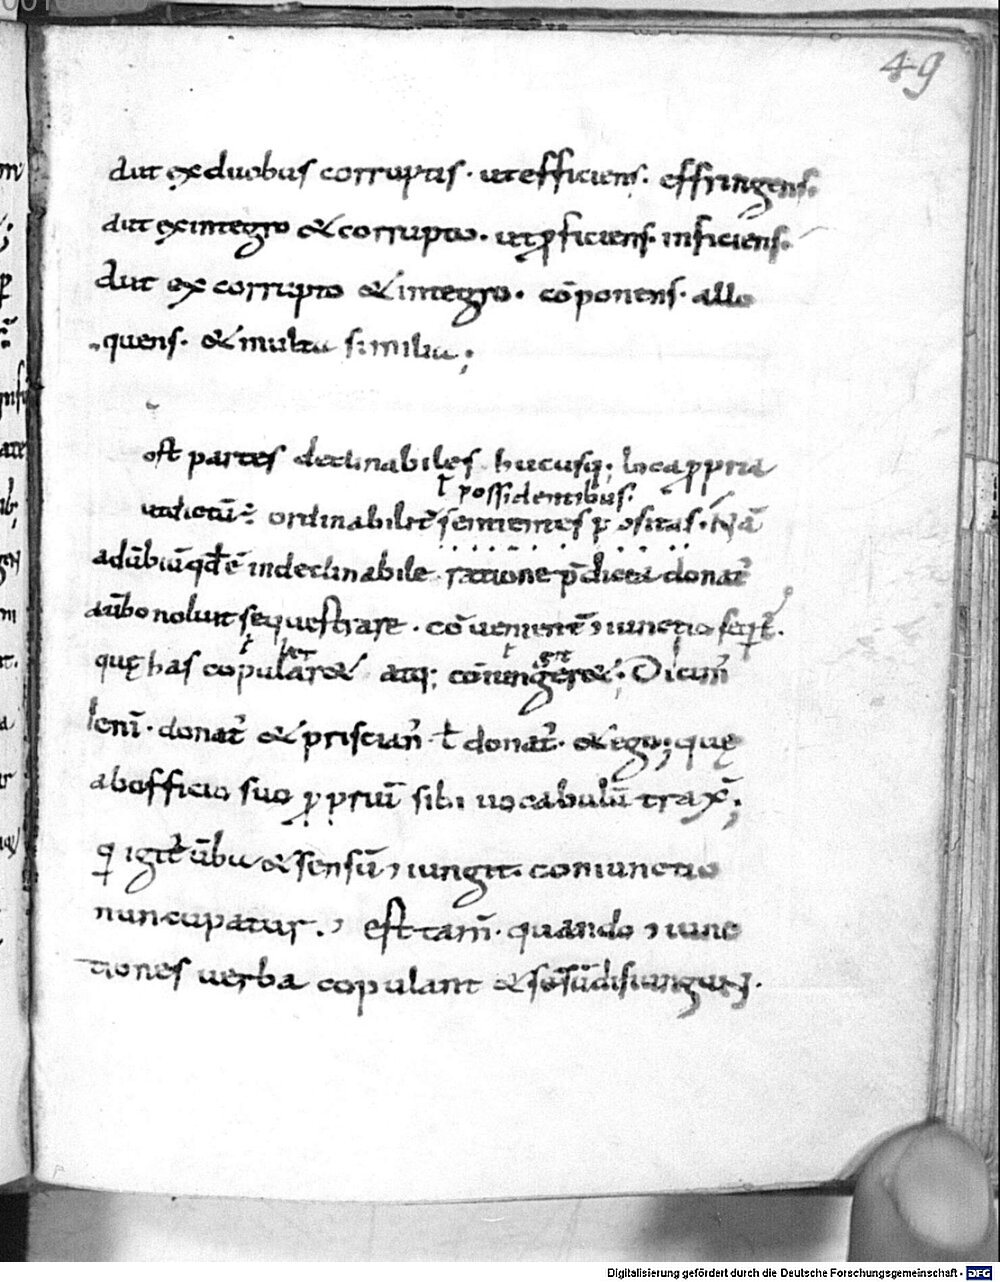 49
Aut ex duobus corruptis · ut efficiens · effringens ·
Aut ex integro & corrupto · ut ꝓficiens · inficiens ·
Aut ex corrupto & integro · cōponens · allo
quens · & multa similia ;
ost partes declinabiles hucusq; loca ꝓpria
ł possidentibus :
ut dictū ÷ ordinabilit sententes positas · Nā
adūbiū qđ ē indeclinabile ratione p̄dicta donat
a ūbo noluit sequestrare · cōuenient iunctio seqt̄ ·
quę has copular& atq; cōiunger& · Dicun
donat & priscian ł donat · & ego ; quę
ab officio suo ꝓpriū sibi uocabulū trax ;
q igit ūba & sensū iungit · coniunctio
nuncupatur · est tam̄ · quando iunc
tiones uerba copulant & sensū disiungun ·
Digitalisierung gefördert durch die Deutsche Forschungsgemeinschaft - DFG